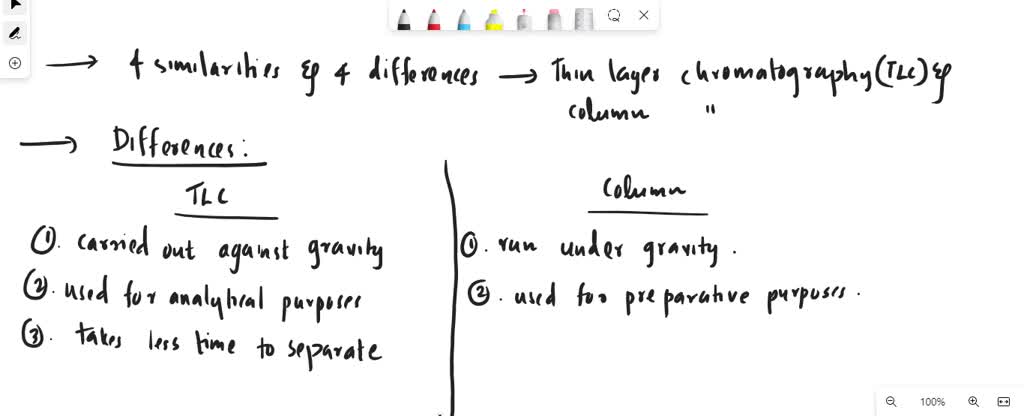 → 4 similarities & 4 differences → Thin layer chromatography (TLC) &
column "
→ Differences:
TLC
① carried out against gravity
② used for analytical purposes
③ takes less time to separate
Column
① run under gravity.
② used for preparative purposes.
100%